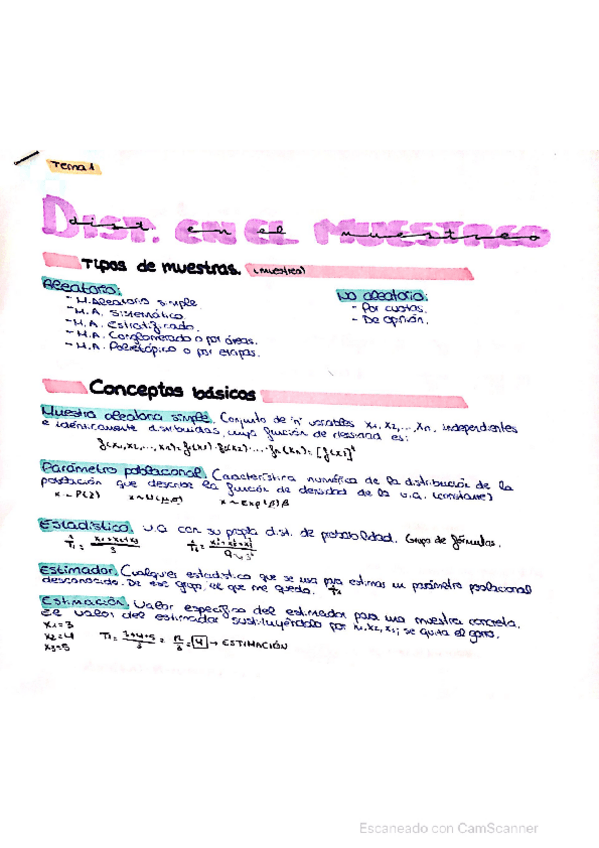 Tema 1
DIST. EN EL MUESTREO
dist. en el muestreo
Tipos de muestras. (muestreo)
Aleatorio:
- M. Aleatorio simple.
- M.A. Sistemático
- M.A. Estratificado.
- M.A. Conglomerado o por áreas.
- M.A. Polietápico o por etapas.
No aleatorio:
- Por cuotas.
- De opinión.
Conceptos básicos
Muestra aleatoria simple. Conjunto de 'n' variables x₁, x₂, ..., xn, independientes
e idénticamente distribuidas, cuya función de densidad es:
Parámetro poblacional. Característica numérica de la distribución de la
población que describe la función de densidad de la v.a. (constante)
Estadístico. v.a con su propia dist. de probabilidad. Grupo de fórmulas.
Estimador. Cualquier estadístico que se usa para estimar un parámetro poblacional
desconocido. De ese grupo, el que me queda.
Estimación. Valor específico del estimador para una muestra concreta.
El valor del estimador sustituyéndolo por x₁, x₂, x₃; se quita el gorro.
x₁=3
x₂=4
x₃=5
→ ESTIMACIÓN
Escaneado con CamScanner